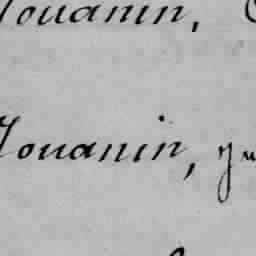 Jouanin,
Jouanin,